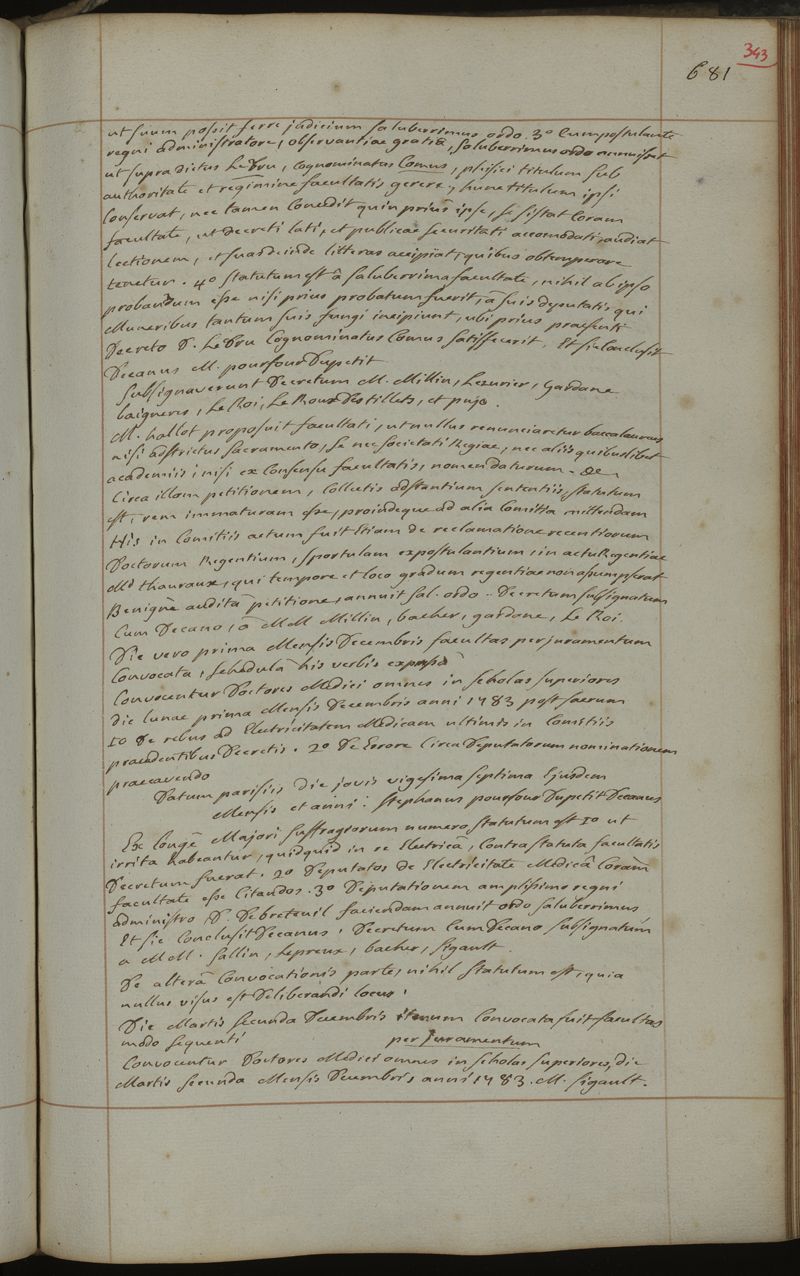 343
681
ut suum possit ferre judicium saluberrimus ordo. 3º Cum postulante
regni administratore, observantiae gratiâ, saluberrimus ordo annuisset
ut supra dictus LeDru, cognominatus Comus, phisici titulum sub
authoritate et regimine facultatis gerere, hunc titulum ipsi
Conservat, nec tamen Concedit quin prius ipse, se sistat Coram
facultate, ut Decreti lati, et publicae securitati accomodati, audiat
lectionem, et suas deinde litteras accipiat, quibus obtemperare
tenetur. 4º statutum est â saluberrima facultate, nihil ab ipso
probandum esse nisi prius probatum fuerit, â suis deputatis qui
Muneribus tantum suis fungi incipiunt, ubi prius praesenti
Decreto D. LeDru Cognominatus Comus satisfecerit. Et sic conclusit
Decanus M. pourfour Dupetit
Subsignaverunt Decretum M. Millin, Lezurier, Gardane
baigneres, Le Roi, Le Roux Des tillets, et pujo.
M. hallot proposuit facultati, ut nullus renunciaretur baccalaureus
nisi adstrictus sacramento, se nec societati Regiae, nec aliis quibuslibet
academiis, nisi ex Consensu facultatis, nomen daturum. De
Circa illam petitionem, Collectis adstantium sententiis, statutum
est, rem immaturam esse, proindeque ad alia Comitia mittendam
His in Comitiis actum fuit Etiam de reclamatione recentiorum
Doctorum Regentium, sportulam expostulantium in actu Regentiae
Md thauraux, qui tempore et loco gradum regentiae non assumpserat
Benignè auditâ petitione, annuit sal. ordo. Decretum subsignatum
Cum Decano, â MM Millin, bacher, gardane, Le Roi.
Die vero prima Mensis Decembris facultas per juramentum
Convocata, schedulâ his verbis expressâ
Convocentur Doctores Medici omnes in scholas superiores
die lunae prima Mensis Decembris anni 1783 post sacrum
1º De rebus ad Electricitatem Medicam ultimis in Comitiis
praecedentibus Decretis. 2º De Errore Circa Deputatorum nominationem
praecavendo
Datum parisiis die jovis vigesima septima Ejusdem
Mensis et anni: Stephanus pourfour Dupetit Decanus
Ex longè Majori suffragiorum numero statutum est 1º ut
irrita habeantur, quidquid in re Electricâ, Contra statuta facultatis
Decretum fuerat. 2º Deputatos de Electricitate Medicâ Coram
facultate esse Citandos. 3º Deputationem amplissimo regni
administro D. De breteuil faciendam annuit ordo saluberrimus
Et sic Conclusit Decanus, Decretum Cum Decano subsignatum
a MM. Sallin, Lepreux, bacher, sigault.
De alterâ Convocationis parte, nihil statutum est, quia
nullus visus est Deliberandi locus.
Die Martis secunda Decembris iterum Convocata fuit facultas
modo sequenti per juramentum
Convocentur Doctores Medici omnes in scholas superiores, die
Martis secunda Mensis Decembris anni 1783. M. Sigault.